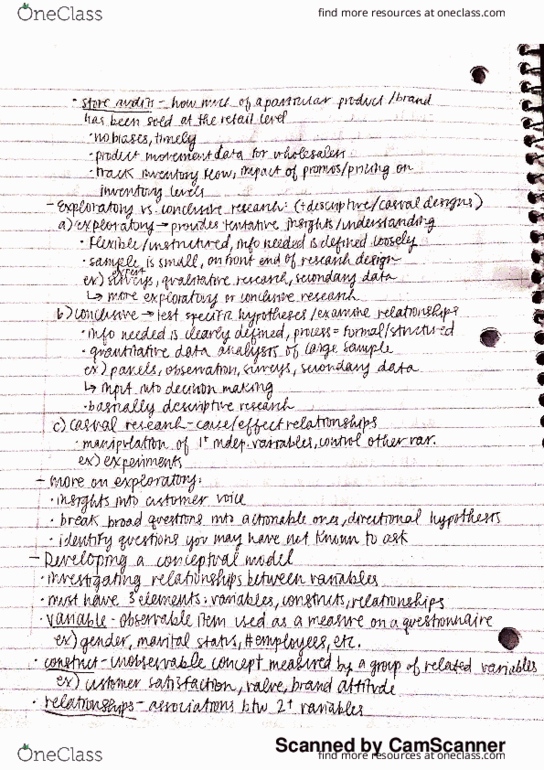 OneClass
find more resources at oneclass.com
• store audits - how much of a particular product/brand
has been sold at the retail level
• no biases, timely
• product movement data for wholesalers
• track inventory flow, impact of promos/pricing on
inventory levels
- Exploratory vs conclusive research: (+ descriptive/casual designs)
a) exploratory → provides tentative insights/understanding
• Flexible/unstructured, info needed is defined loosely
• sample is small, on front end of research design
expert
ex) surveys, qualitative research, secondary data
↳ more exploratory or conclusive research
b) conclusive → test specific hypotheses/examine relationships
• info needed is clearly defined, process = formal/structured
• quantitative data analysis of large sample
ex) panels, observation, surveys, secondary data
↳ input into decision making
• basically descriptive research
c) casual research - cause/effect relationships
• manipulation of 1+ indep. variables, control other var.
ex) experiments
- more on exploratory:
• insights into customer voice
• break broad questions into actionable ones, directional hypothesis
• identify questions you may have not known to ask
- Developing a conceptual model
• investigating relationships between variables
• must have 3 elements: variables, constructs, relationships
• variable - observable item used as a measure on a questionnaire
ex) gender, marital status, #employees, etc.
• construct - unobservable concept measured by a group of related variables
ex) customer satisfaction, value, brand attitude
• relationships - associations btw 2+ variables
Scanned by CamScanner
OneClass
find more resources at oneclass.com